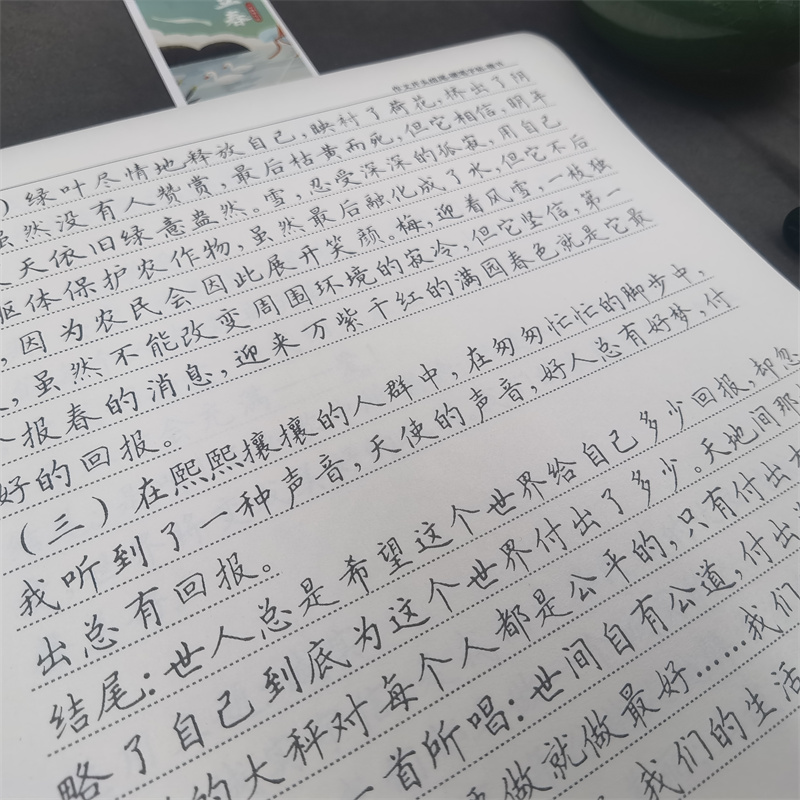 立春
作文开头结尾·硬笔字帖·楷书
绿叶尽情地释放自己,映衬了荷花,挤出了阴
虽然没有人赞赏,最后枯黄而死,但它相信,明年
天依旧绿意盎然。雪,忍受深深的孤寂,用自己
躯体保护农作物,虽然最后融化成了水,但它不后
,因为农民会因此展开笑颜。梅,迎着风雪,一枝独
,虽然不能改变周围环境的寂冷,但它坚信,第一
人报春的消息,迎来万紫千红的满园春色就是它最
好的回报。
(三)在熙熙攘攘的人群中,在匆匆忙忙的脚步中,
我听到了一种声音,天使的声音,好人总有好梦,付
出总有回报。
结尾:世人总是希望这个世界给自己多少回报,却忽
略了自己到底为这个世界付出了多少。天地间那
的大秤对每个人都是公平的,只有付出
一首所唱:世间自有公道,付出
要做就做最好……我们
我们的生活